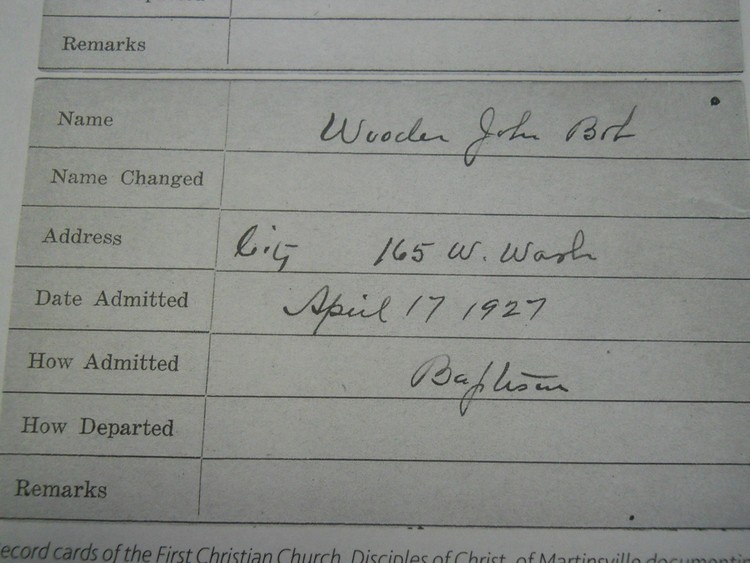 Remarks
Name Wooden John Bob
Name Changed
Address City 165 W. Wash
Date Admitted April 17 1927
How Admitted Baptism
How Departed
Remarks
ecord cards of the First Christian Church, Disciples of Christ, of Martinsville documentin